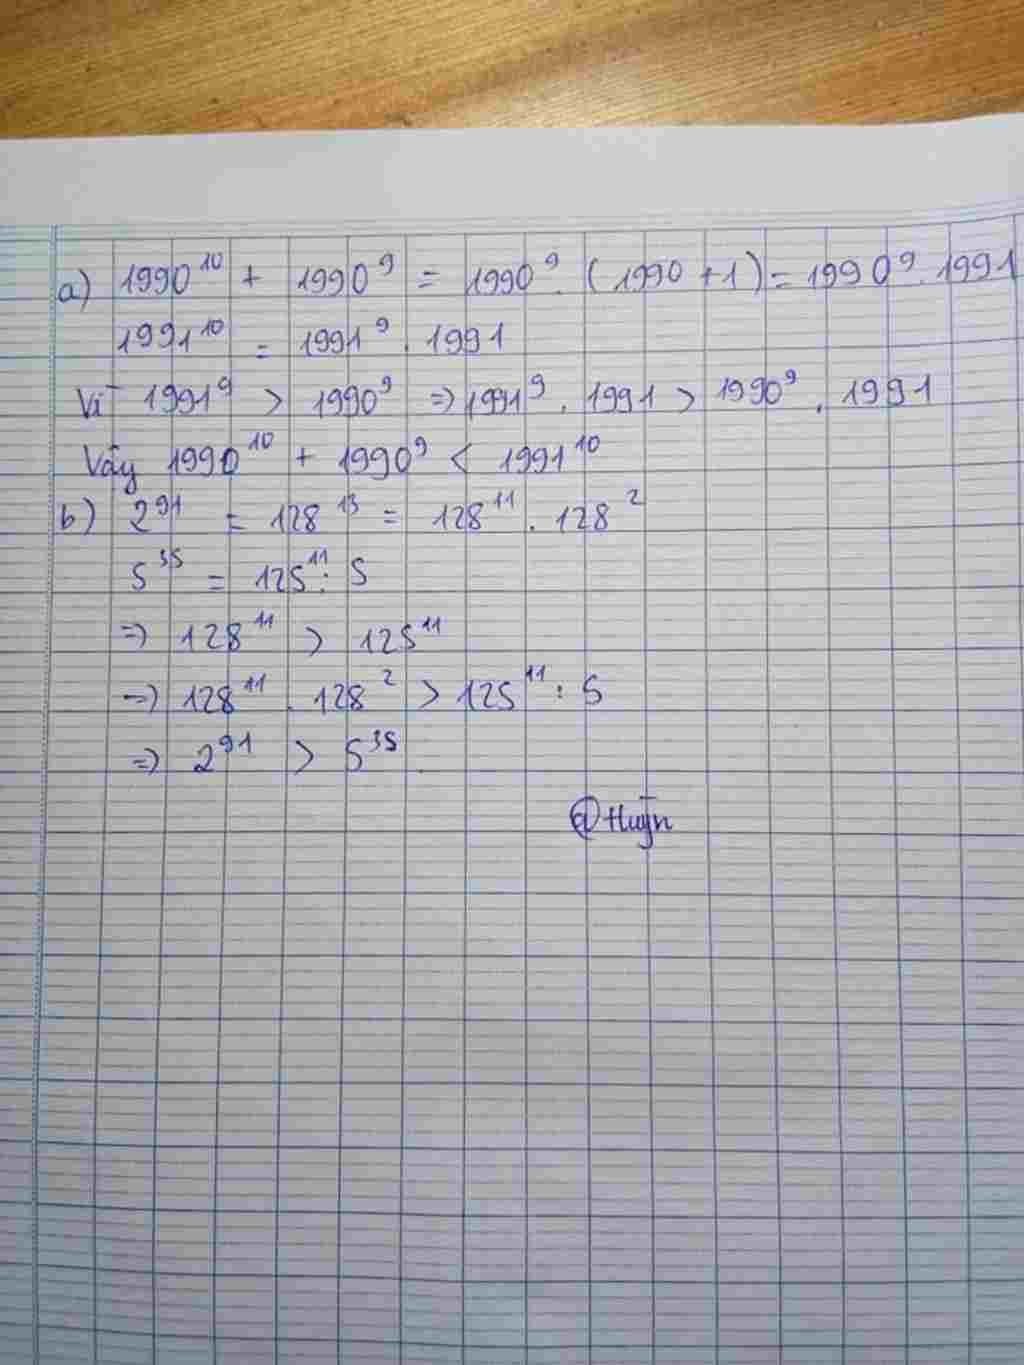 a) 1990¹⁰ + 1990⁹ = 1990⁹. (1990 + 1) = 1990⁹. 1991
1991¹⁰ = 1991⁹. 1991
Vì 1991⁹ > 1990⁹ => 1991⁹. 1991 > 1990⁹. 1991
Vậy 1990¹⁰ + 1990⁹ < 1991¹⁰
b) 2⁹¹ = 128¹³ = 128¹¹. 128²
5³⁵ = 125¹¹: 5
=> 128¹¹ > 125¹¹
=> 128¹¹. 128² > 125¹¹: 5
=> 2⁹¹ > 5³⁵